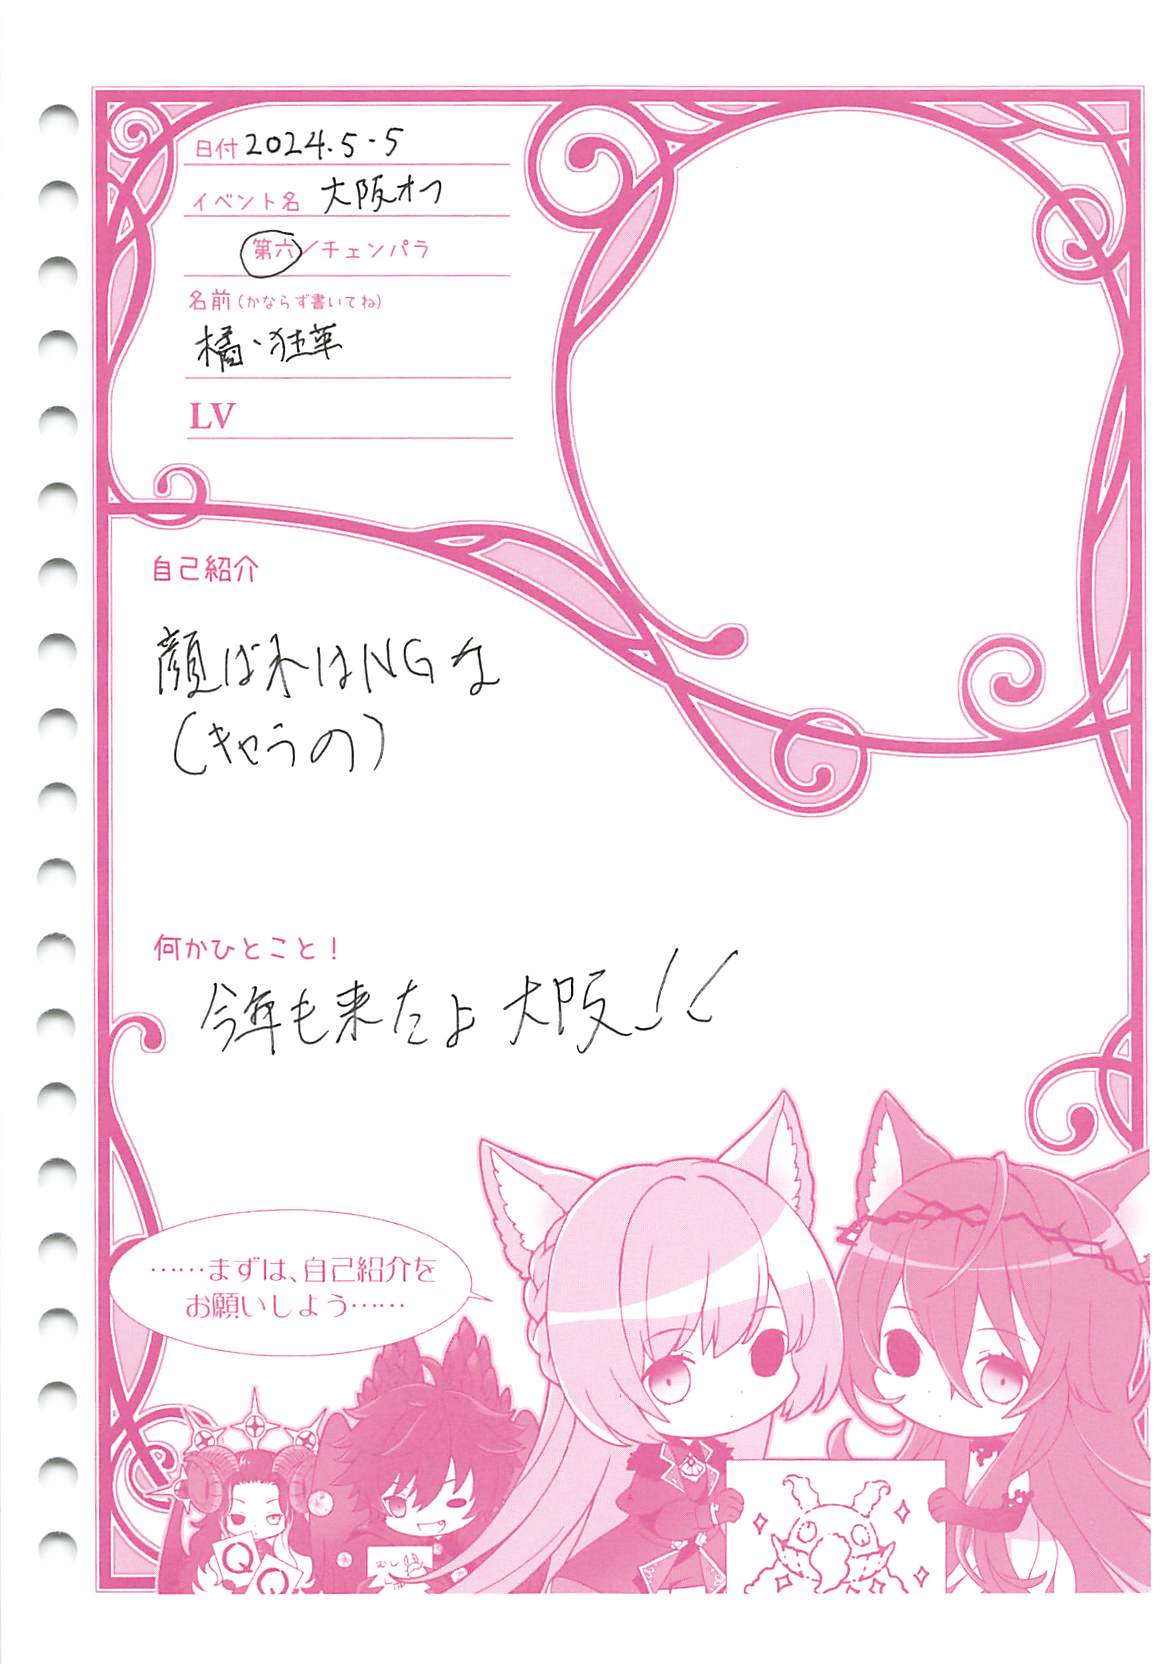 日付 2024.5.5
イベント名 大阪オフ
第六／チェンパラ
名前(かならず書いてね)
橘、狂華
LV
自己紹介
顔ばれはNGな
(キャラの)
何かひとこと！
今年も来たよ大阪!!
……まずは、自己紹介を
お願いしよう……
Q Q
むし